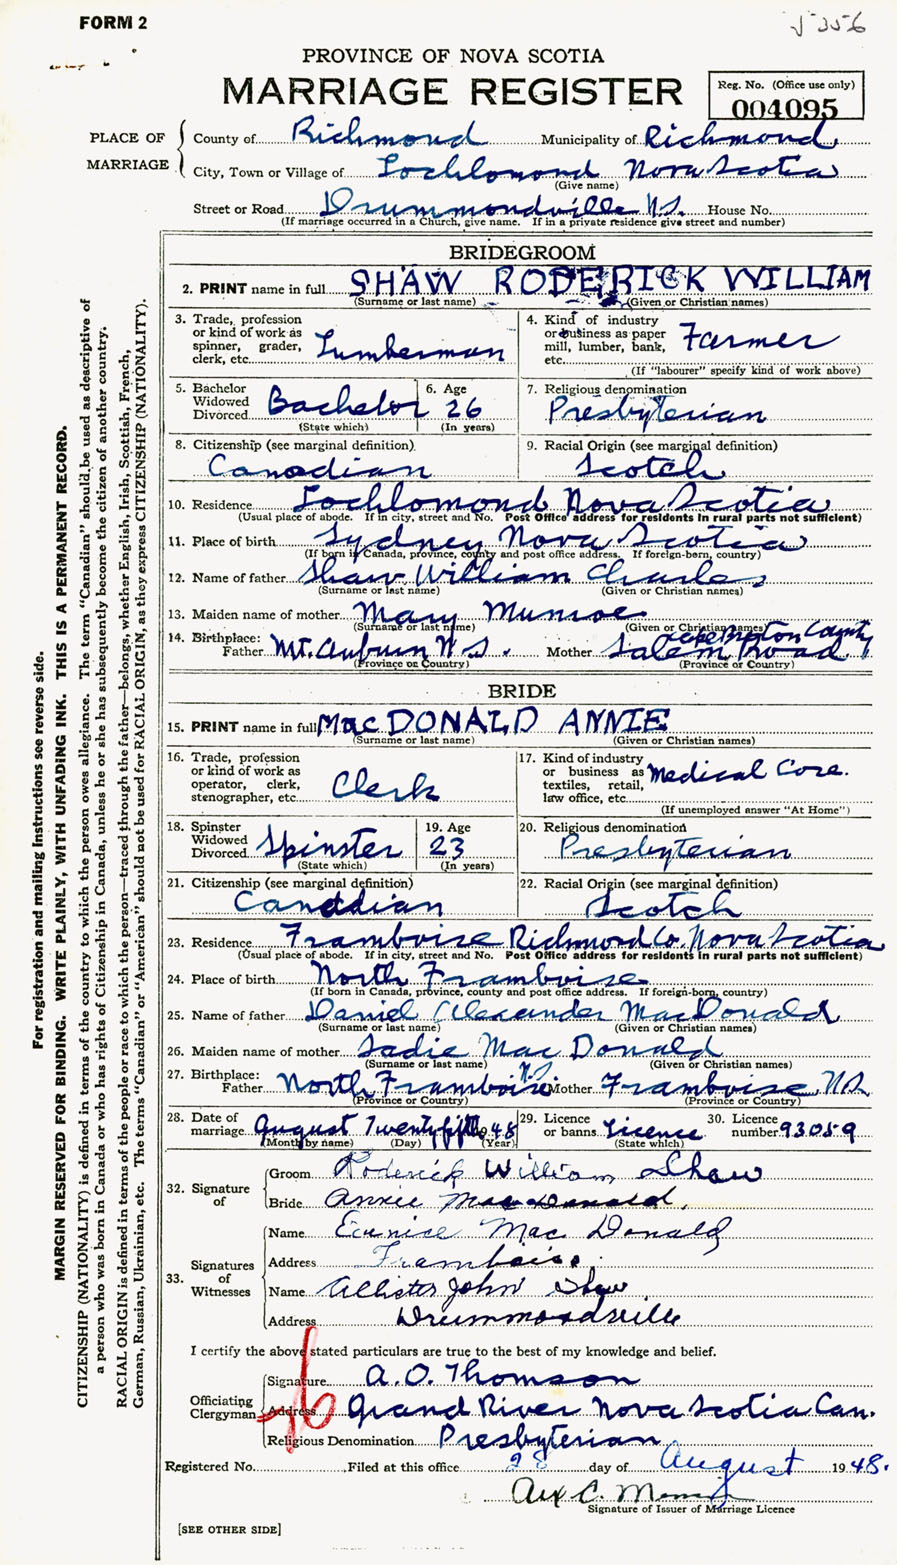 FORM 2
PROVINCE OF NOVA SCOTIA
MARRIAGE REGISTER
Reg. No. (Office use only)
004095
PLACE OF MARRIAGE
County of Richmond Municipality of Richmond
City, Town or Village of Lochlomond Nova Scotia
(Give name)
Street or Road Drummondville N.S. House No.
(If marriage occurred in a Church, give name. If in a private residence give street and number)
BRIDEGROOM
2. PRINT name in full SHAW RODERICK WILLIAM
(Surname or last name) (Given or Christian names)
3. Trade, profession or kind of work as spinner, grader, clerk, etc. Lumberman
4. Kind of industry or business as paper mill, lumber, bank, etc. Farmer
(If "labourer" specify kind of work above)
5. Bachelor Widowed Divorced Bachelor
(State which)
6. Age 26
(In years)
7. Religious denomination
Presbyterian
8. Citizenship (see marginal definition)
Canadian
9. Racial Origin (see marginal definition)
Scotch
10. Residence Lochlomond Nova Scotia
(Usual place of abode. If in city, street and No. Post Office address for residents in rural parts not sufficient)
11. Place of birth Sydney Nova Scotia
(If born in Canada, province, county and post office address. If foreign-born, country)
12. Name of father Shaw William Charles
(Surname or last name) (Given or Christian names)
13. Maiden name of mother Mary Munroe
(Surname or last name) (Given or Christian names)
14. Birthplace: Father Mt. Auburn N.S. Mother Salem Road Cape Breton County
(Province or Country) (Province or Country)
BRIDE
15. PRINT name in full MacDONALD ANNIE
(Surname or last name) (Given or Christian names)
16. Trade, profession or kind of work as operator, clerk, stenographer, etc. Clerk
17. Kind of industry or business as textiles, retail, law office, etc. Medical Core.
(If unemployed answer "At Home")
18. Spinster Widowed Divorced Spinster
(State which)
19. Age 23
(In years)
20. Religious denomination
Presbyterian
21. Citizenship (see marginal definition)
Canadian
22. Racial Origin (see marginal definition)
Scotch
23. Residence Framboise Richmond Co. Nova Scotia
(Usual place of abode. If in city, street and No. Post Office address for residents in rural parts not sufficient)
24. Place of birth North Framboise
(If born in Canada, province, county and post office address. If foreign-born, country)
25. Name of father Daniel Alexander MacDonald
(Surname or last name) (Given or Christian names)
26. Maiden name of mother Sadie MacDonald
(Surname or last name) (Given or Christian names)
27. Birthplace: Father North Framboise N.S. Mother Framboise N.S.
(Province or Country) (Province or Country)
28. Date of marriage August Twenty fifth 1948
(Month by name) (Day) (Year)
29. Licence or banns Licence
(State which)
30. Licence number 93059
32. Signature of
Groom Roderick William Shaw
Bride Annie MacDonald.
33. Signatures of Witnesses
Name Eunice MacDonald
Address Framboise.
Name Allister John Shaw
Address Drummondville
I certify the above stated particulars are true to the best of my knowledge and belief.
Officiating Clergyman
Signature A.O. Thomson
Address Grand River Nova Scotia Can.
Religious Denomination Presbyterian
Registered No. Filed at this office 28 day of August 1948.
Alex C.
Signature of Issuer of Marriage Licence
[SEE OTHER SIDE]
For registration and mailing instructions see reverse side.
MARGIN RESERVED FOR BINDING. WRITE PLAINLY, WITH UNFADING INK. THIS IS A PERMANENT RECORD.
CITIZENSHIP (NATIONALITY) is defined in terms of the country to which the person owes allegiance. The term "Canadian" should be used as descriptive of
a person who was born in Canada or who has rights of Citizenship in Canada, unless he or she has subsequently become the citizen of another country.
RACIAL ORIGIN is defined in terms of the people or race to which the person—traced through the father—belongs, whether English, Irish, Scottish, French,
German, Russian, Ukrainian, etc. The terms "Canadian" or "American" should not be used for RACIAL ORIGIN, as they express CITIZENSHIP (NATIONALITY).